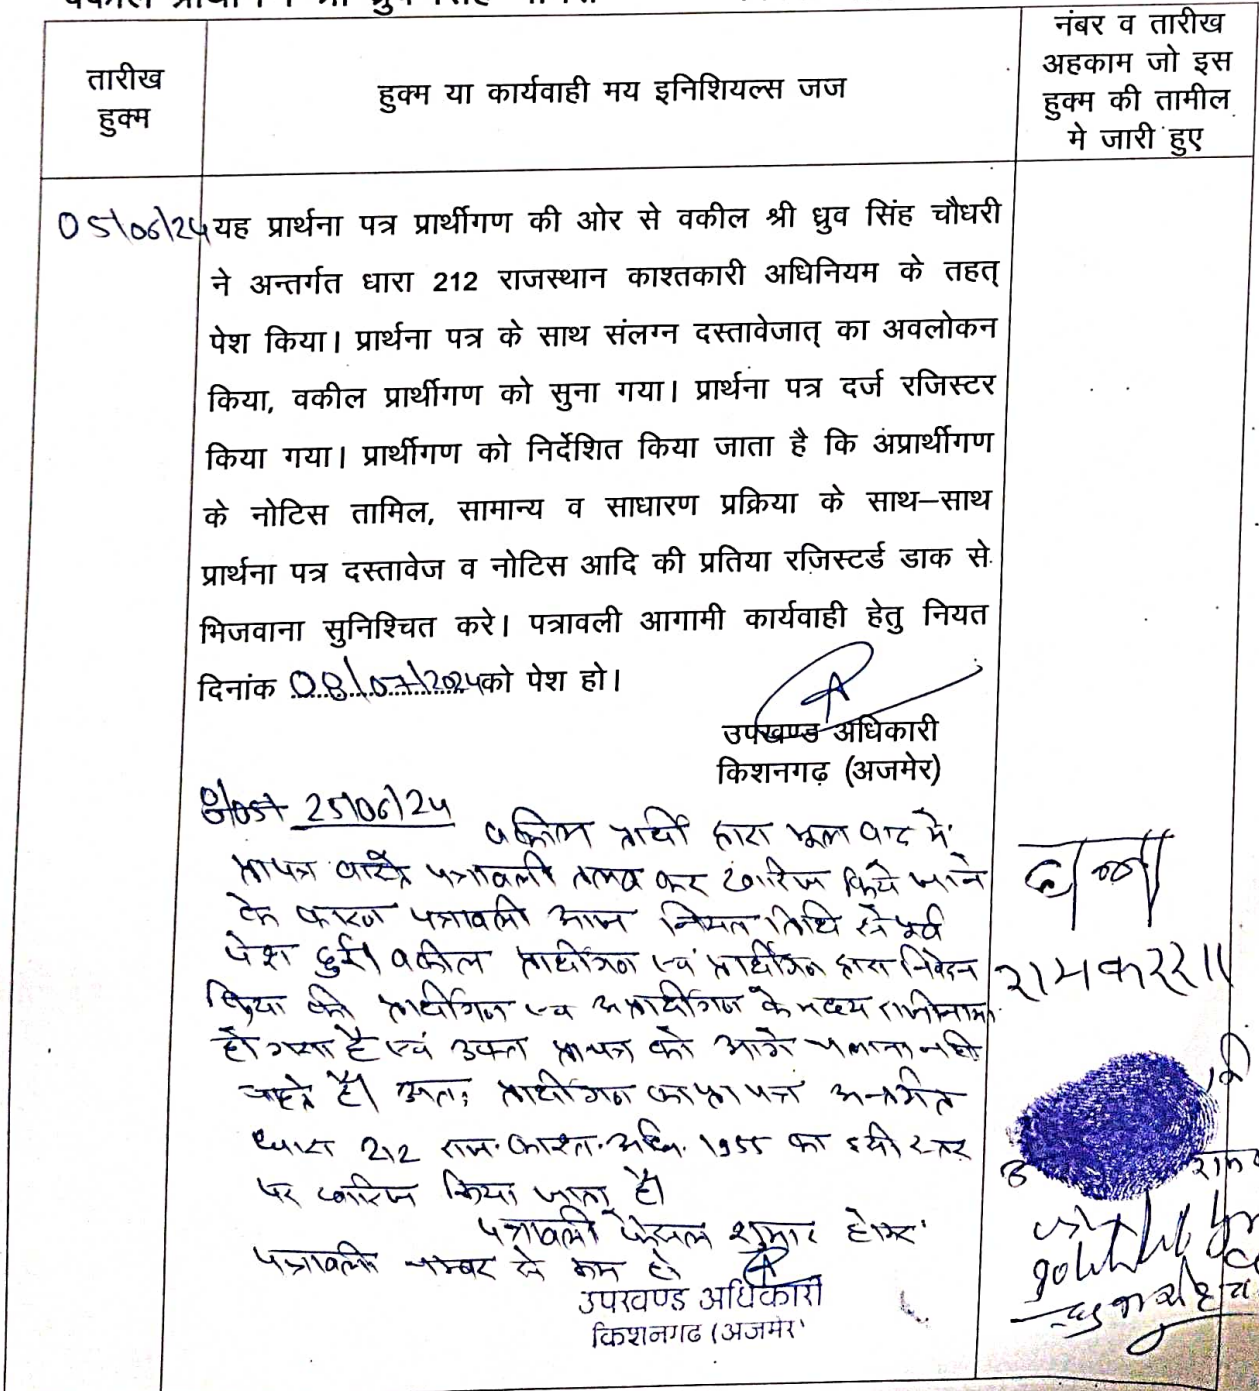 तारीख
हुक्म
हुक्म या कार्यवाही मय इनिशियल्स जज
नंबर व तारीख
अहकाम जो इस
हुक्म की तामील
मे जारी हुए
05/06/24 यह प्रार्थना पत्र प्रार्थीगण की ओर से वकील श्री ध्रुव सिंह चौधरी
ने अन्तर्गत धारा 212 राजस्थान काश्तकारी अधिनियम के तहत्
पेश किया। प्रार्थना पत्र के साथ संलग्न दस्तावेजात् का अवलोकन
किया, वकील प्रार्थीगण को सुना गया। प्रार्थना पत्र दर्ज रजिस्टर
किया गया। प्रार्थीगण को निर्देशित किया जाता है कि अप्रार्थीगण
के नोटिस तामिल, सामान्य व साधारण प्रक्रिया के साथ–साथ
प्रार्थना पत्र दस्तावेज व नोटिस आदि की प्रतिया रजिस्टर्ड डाक से
भिजवाना सुनिश्चित करे। पत्रावली आगामी कार्यवाही हेतु नियत
दिनांक 08/07/2024 को पेश हो।
उपखण्ड अधिकारी
किशनगढ़ (अजमेर)
25/06/24
वकील प्रार्थी द्वारा मूल वाद में
प्रा.पत्र वास्ते पत्रावली तलब कर खारिज किये जाने
के कारण पत्रावली आज नियत तिथि से पूर्व
पेश हुई। वकील प्रार्थीगण एवं प्रार्थीगण द्वारा निवेदन
किया की प्रार्थीगण एवं अप्रार्थीगण के मध्य राजीनामा
हो गया है एवं उक्त प्रा.पत्र को आगे चलाना नही
चाहते है। अतः प्रार्थीगण का प्रा.पत्र अन्तर्गत
धारा 212 राज. काश्त. अधि. 1955 का इसी स्तर
पर खारिज किया जाता है।
पत्रावली फैसल शुमार होकर
पत्रावली नम्बर से कम हो
उपखण्ड अधिकारी
किशनगढ (अजमेर)
रामकरण